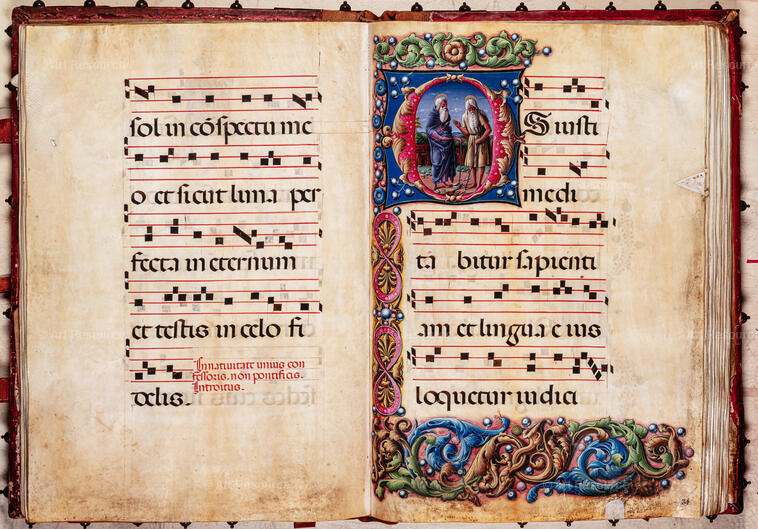 sol in cōspectu me
o et sicut luna per
fecta in eternum
et testis in celo fi
delis.
In natiuitate unius con
fessoris. non pontificis.
Introitus.
OS iusti
medi
ta bitur sapienti
am et lingua e ius
loquetur iudici
34